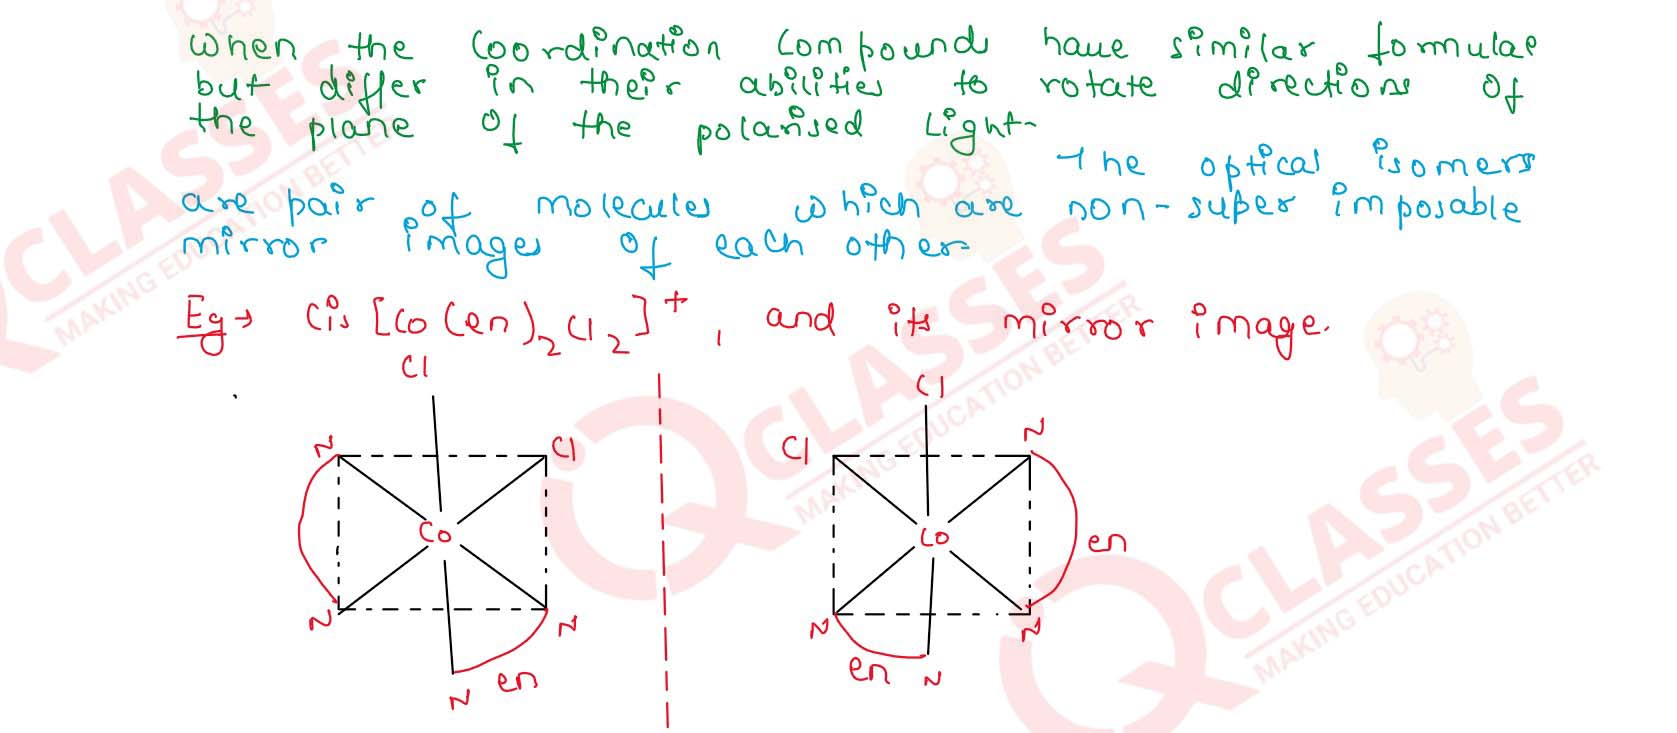 when the coordination compounds have similar formulae
but differ in their abilities to rotate directions of
the plane of the polarised light-
The optical isomers
are pair of molecules which are non-super imposable
mirror images of each other
Eg→ Cis [Co(en)₂Cl₂]⁺, and its mirror image.
Cl
Cl
N
Cl
Cl
N
Co
Co
en
N
N
N
N
en
N
en
N
QCLASSES
MAKING EDUCATION BETTER
QCLASSES
MAKING EDUCATION BETTER
QCLASSES
MAKING EDUCATION BETTER